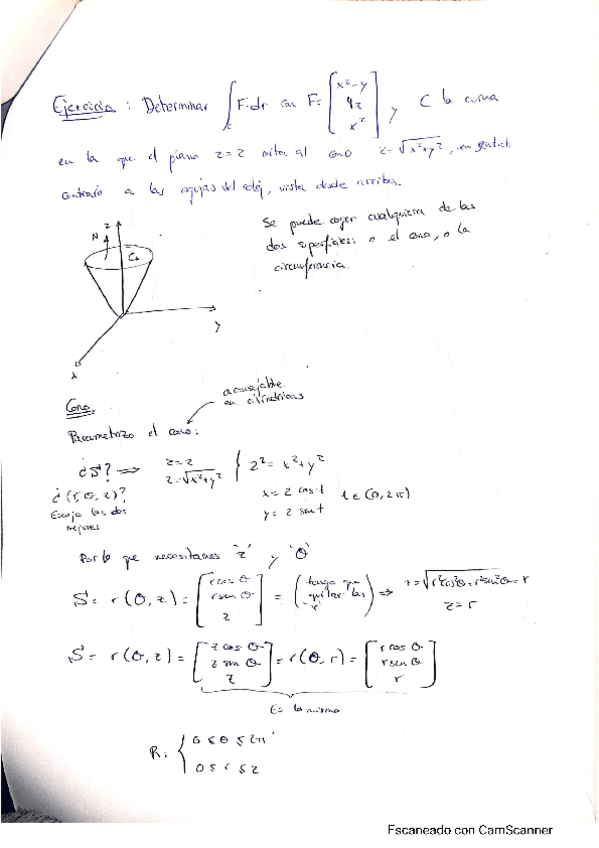 Ejercicio: Determinar ∫_C F·dr con F = [x²-y, 4z, x²] y C la curva
en la que el plano z=2 corta al cono z=√x²+y², en sentido
contrario a las agujas del reloj, vista desde arriba.
Se puede coger cualquiera de las
dos superficies: o el cono, o la
circunferencia.
z
N
C
y
x
Cono.
aconsejable
en cilíndricas
Parametrizo el cono:
¿S? ⇒ z=2
z=√x²+y² { 2²=x²+y²
¿(r, θ, z)? x = 2 cos t t ∈ (0, 2π)
Escojo las dos
mejores y = 2 sin t
Por lo que necesitamos 'z' y 'θ'
S = r(θ, z) = [r cos θ, r sen θ, z] = (tengo que quitar las r) ⇒ z = √r²cos²θ+r²sin²θ = r
z = r
S = r(θ, z) = [z cos θ, z sin θ, z] = r(θ, r) = [r cos θ, r sen θ, r]
Es lo mismo
R: { 0 ≤ θ ≤ 2π
0 ≤ r ≤ 2
Escaneado con CamScanner